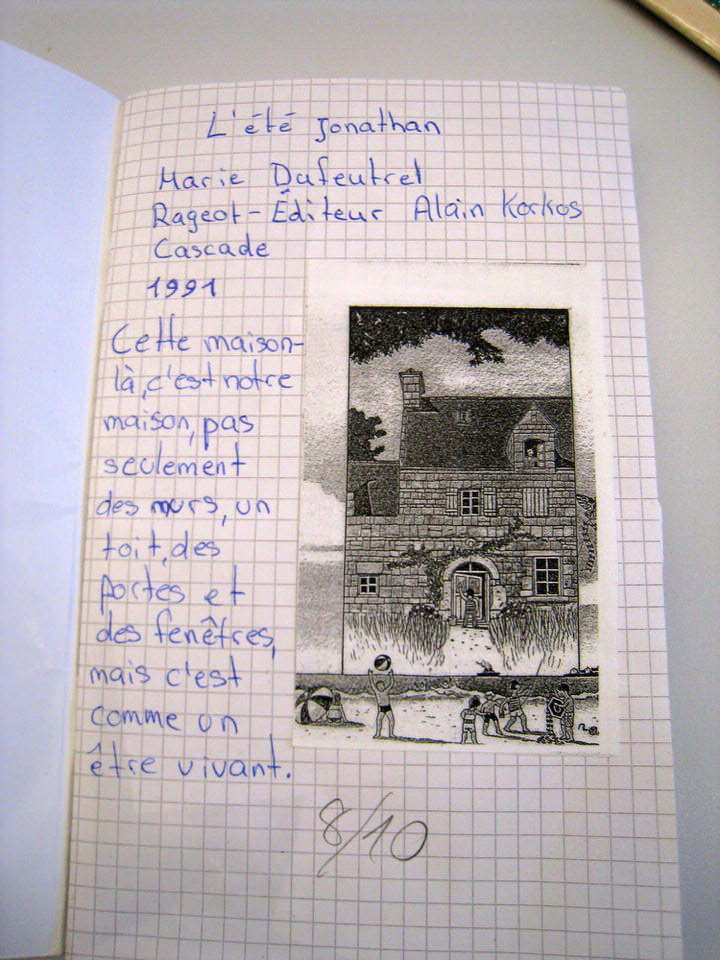 L'été Jonathan
Marie Dufeutrel
Rageot-Éditeur Alain Korkos
Cascade
1991
Cette maison-
là, c'est notre
maison, pas
seulement
des murs, un
toit, des
portes et
des fenêtres,
mais c'est
comme un
être vivant.
8/10